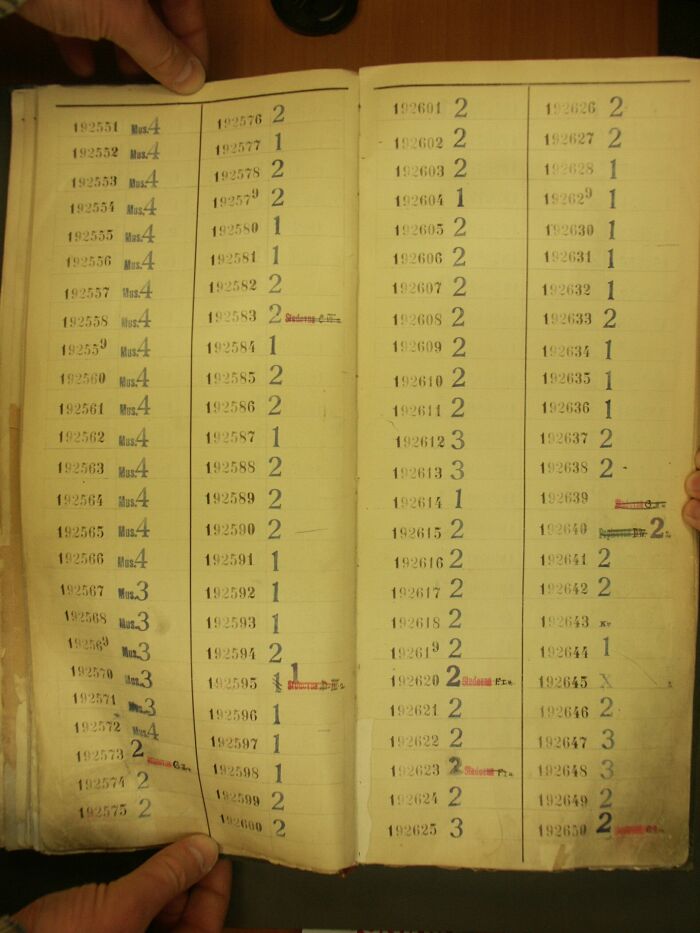 192551 Mus.4
192552 Mus.4
192553 Mus.4
192554 Mus.4
192555 Mus.4
192556 Mus.4
192557 Mus.4
192558 Mus.4
192559 Mus.4
192560 Mus.4
192561 Mus.4
192562 Mus.4
192563 Mus.4
192564 Mus.4
192565 Mus.4
192566 Mus.4
192567 Mus.3
192568 Mus.3
192569 Mus.3
192570 Mus.3
192571 Mus.3
192572 Mus.4
192573 2
192574 2
192575 2
192576 2
192577 1
192578 2
192579 2
192580 1
192581 1
192582 2
192583 2 Studovna
192584 1
192585 2
192586 2
192587 1
192588 2
192589 2
192590 2
192591 1
192592 1
192593 1
192594 2
192595 1 Studovna
192596 1
192597 1
192598 1
192599 2
192600 2
192601 2
192602 2
192603 2
192604 1
192605 2
192606 2
192607 2
192608 2
192609 2
192610 2
192611 2
192612 3
192613 3
192614 1
192615 2
192616 2
192617 2
192618 2
192619 2
192620 2 Studovna
192621 2
192622 2
192623 2 Studovna
192624 2
192625 3
192626 2
192627 2
192628 1
192629 1
192630 1
192631 1
192632 1
192633 2
192634 1
192635 1
192636 1
192637 2
192638 2
192639
192640 2
192641 2
192642 2
192643
192644 1
192645 X
192646 2
192647 3
192648 3
192649 2
192650 2